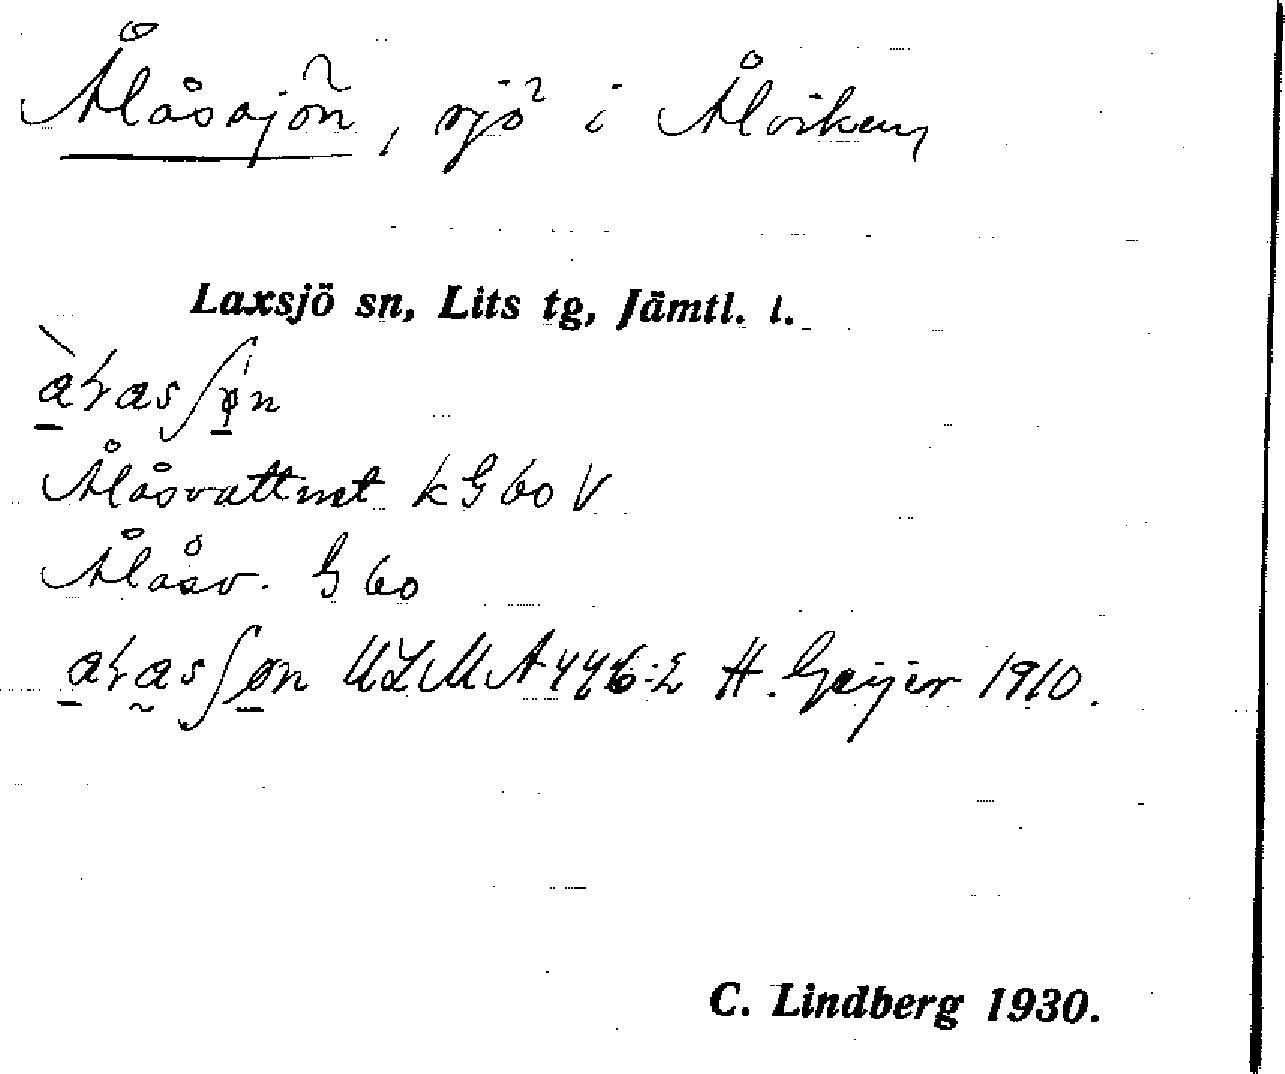 Ålåssjön, sjö i Ålviken
Laxsjö sn, Lits tg, Jämtl. l.
Ålåsvattnet kG60V
Ålåsv. G60
ULMA 446:2 H. Geijer 1910.
C. Lindberg 1930.